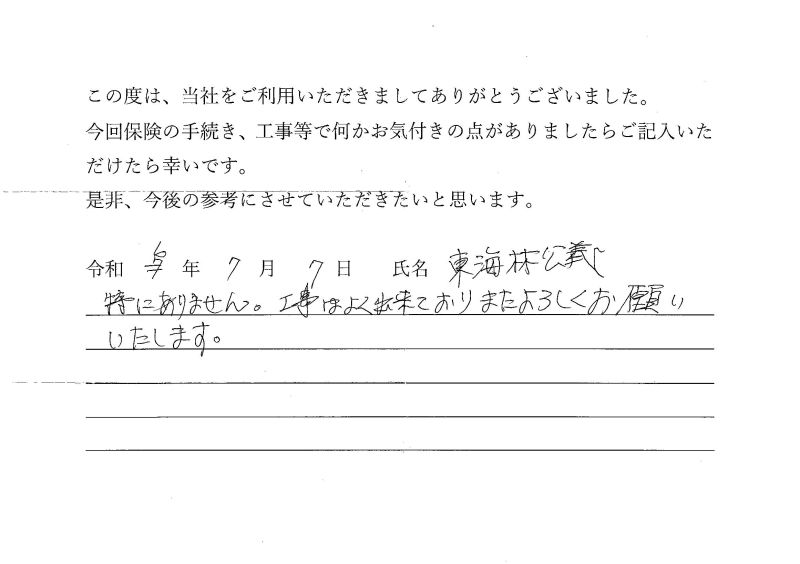 この度は、当社をご利用いただきましてありがとうございました。
今回保険の手続き、工事等で何かお気付きの点がありましたらご記入いた
だけたら幸いです。
是非、今後の参考にさせていただきたいと思います。
令和 年 7 月 7 日 氏名 東海林公義
特にありません。工事はよく出来ておりまたよろしくお願い
いたします。